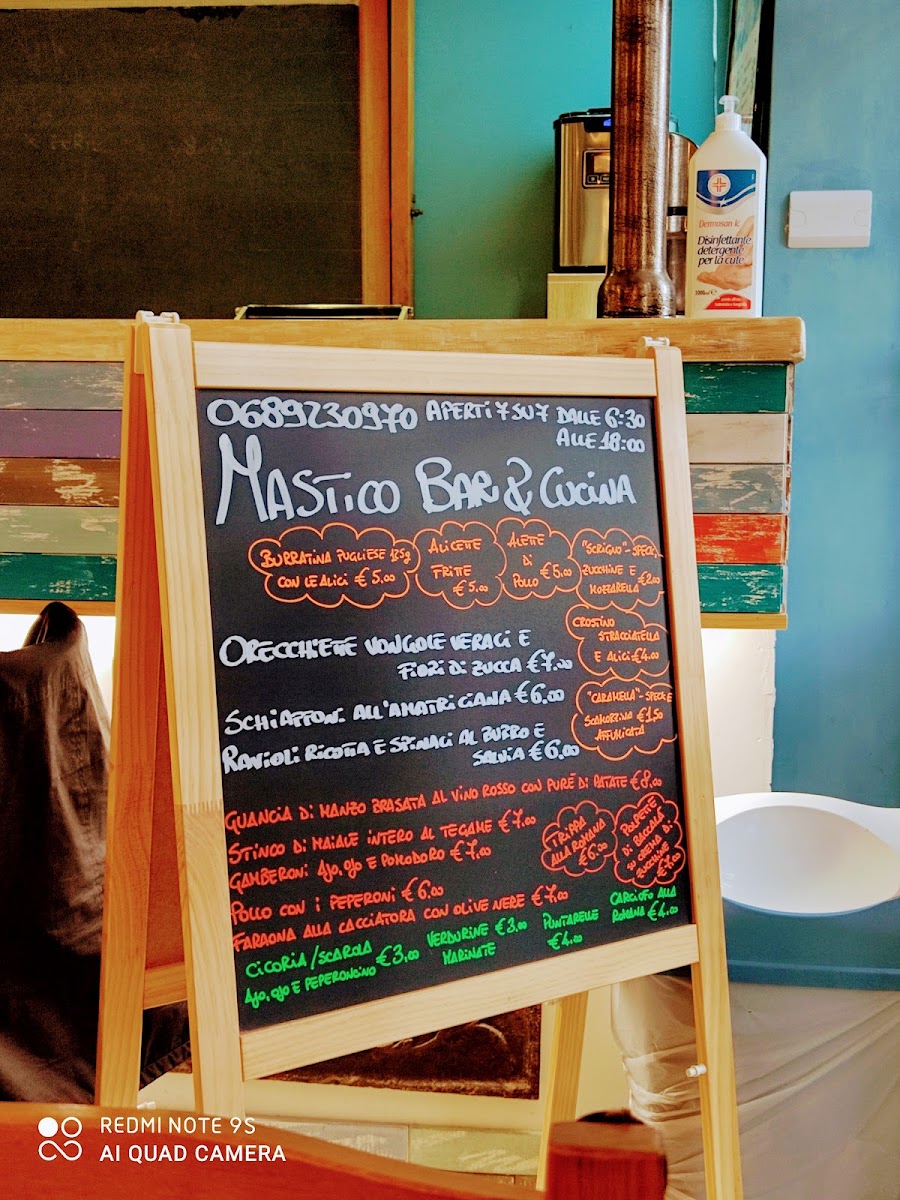 Dermosan k
Disinfettante
detergente
per la cute
1000ml e
0689230970 APERTI 7 SU 7 DALLE 6:30
ALLE 18:00
MASTICO BAR & CUCINA
BURRATINA PUGLIESE 125g
CON LE ALICI € 5,00
ALICETTE
FRITTE
€ 5,00
ALETTE
DI
POLLO € 5,00
"SCRIGNO" - SPECK,
ZUCCHINE E
MOZZARELLA €2,00
CROSTINO
STRACCIATELLA
E ALICI € 4,00
"CARAMELLA" - SPECK E
SCAMORZINA € 1,50
AFFUMICATA
ORECCHIETTE VONGOLE VERACI E
FIORI DI ZUCCA € 7,00
SCHIAFFONI ALL'AMATRICIANA € 6,00
RAVIOLI RICOTTA E SPINACI AL BURRO E
SALVIA € 6,00
GUANCIA DI MANZO BRASATA AL VINO ROSSO CON PURÈ DI PATATE € 8,00
STINCO DI MAIALE INTERO AL TEGAME € 7,00
GAMBERONI AJO, OJO E POMODORO € 7,00
POLLO CON I PEPERONI € 6,00
FARAONA ALLA CACCIATORA CON OLIVE NERE € 7,00
TRIPPA
ALLA ROMANA
€ 6,00
POLPETTE
DI BACCALÀ
SU CREMA DI
ZUCCHINE
€ 7,00
CICORIA / SCAROLA
AJO, OJO E PEPERONCINO € 3,00
VERDURINE € 3,00
MARINATE
PUNTARELLE
€ 4,00
CARCIOFO ALLA
ROMANA € 4,00
REDMI NOTE 9S
AI QUAD CAMERA